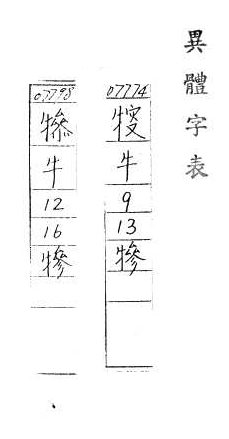 異體字表
07774
牛
9
13
犙
07798
牛
12
16
犙